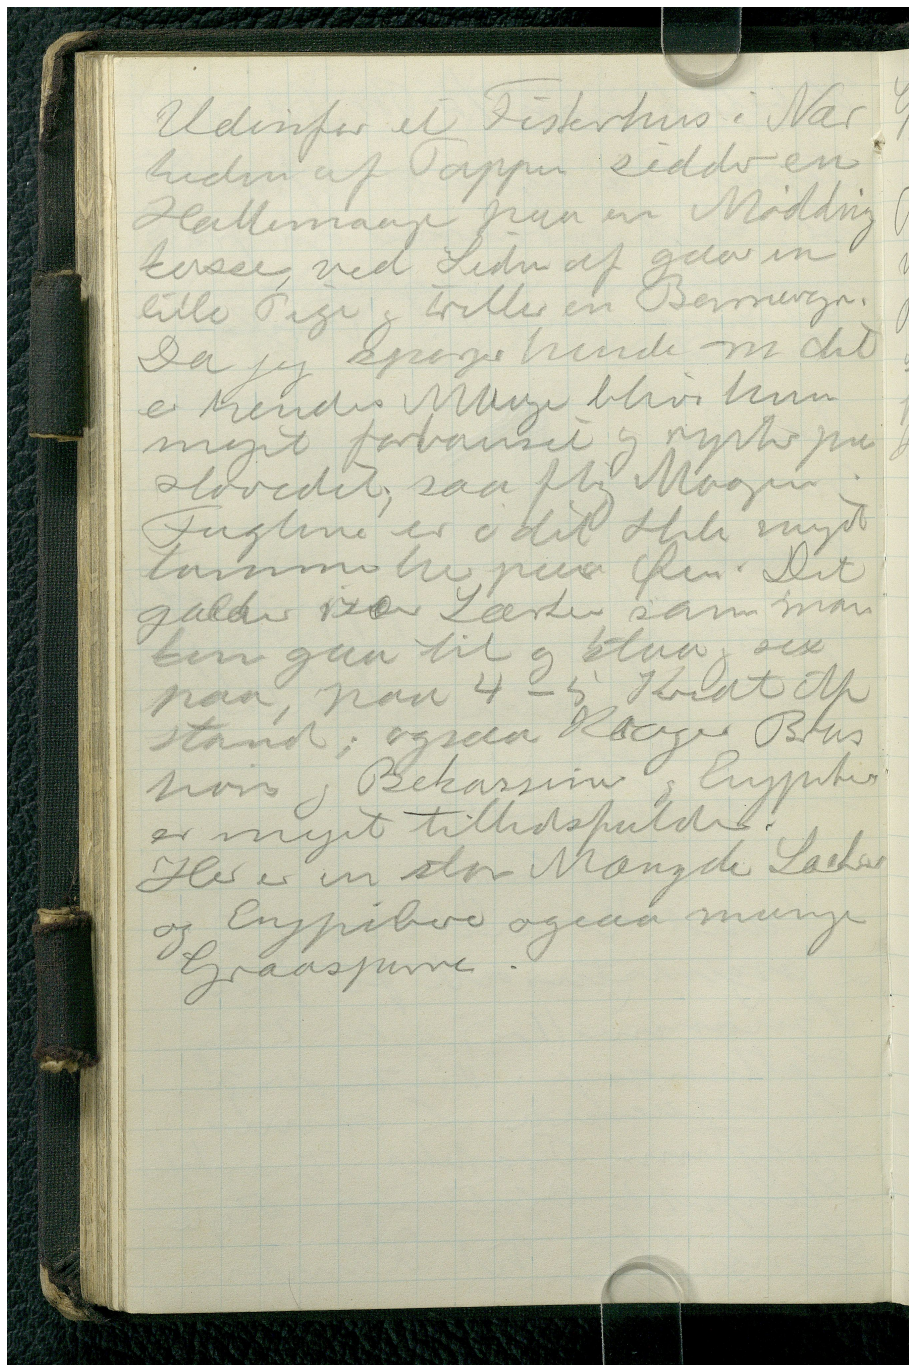 Udenfor et Fiskerhus i Nær
heden af Toppen sidder en
Hættemaage paa en Mødding
kasse, ved Siden af gaar en
lille Pige og triller en Barnevogn.
Da jeg spørger hende om det
er hendes Maage bliver hun
meget forbauset og ryster paa
Hovedet, saa fløj Maagen.
Fuglene er i det Hele meget
tamme her paa Øen. Det
gælder især Lærker, som man
kan gaa til og staa og se
paa, paa 4-5 Skridt Af
stand; ogsaa Rager Brus
høns og Bekassiner og Engpiber
er meget tillidsfulde.
Her er en stor Mængde Lærker
og Engpibere ogsaa mange
Graaspurve.